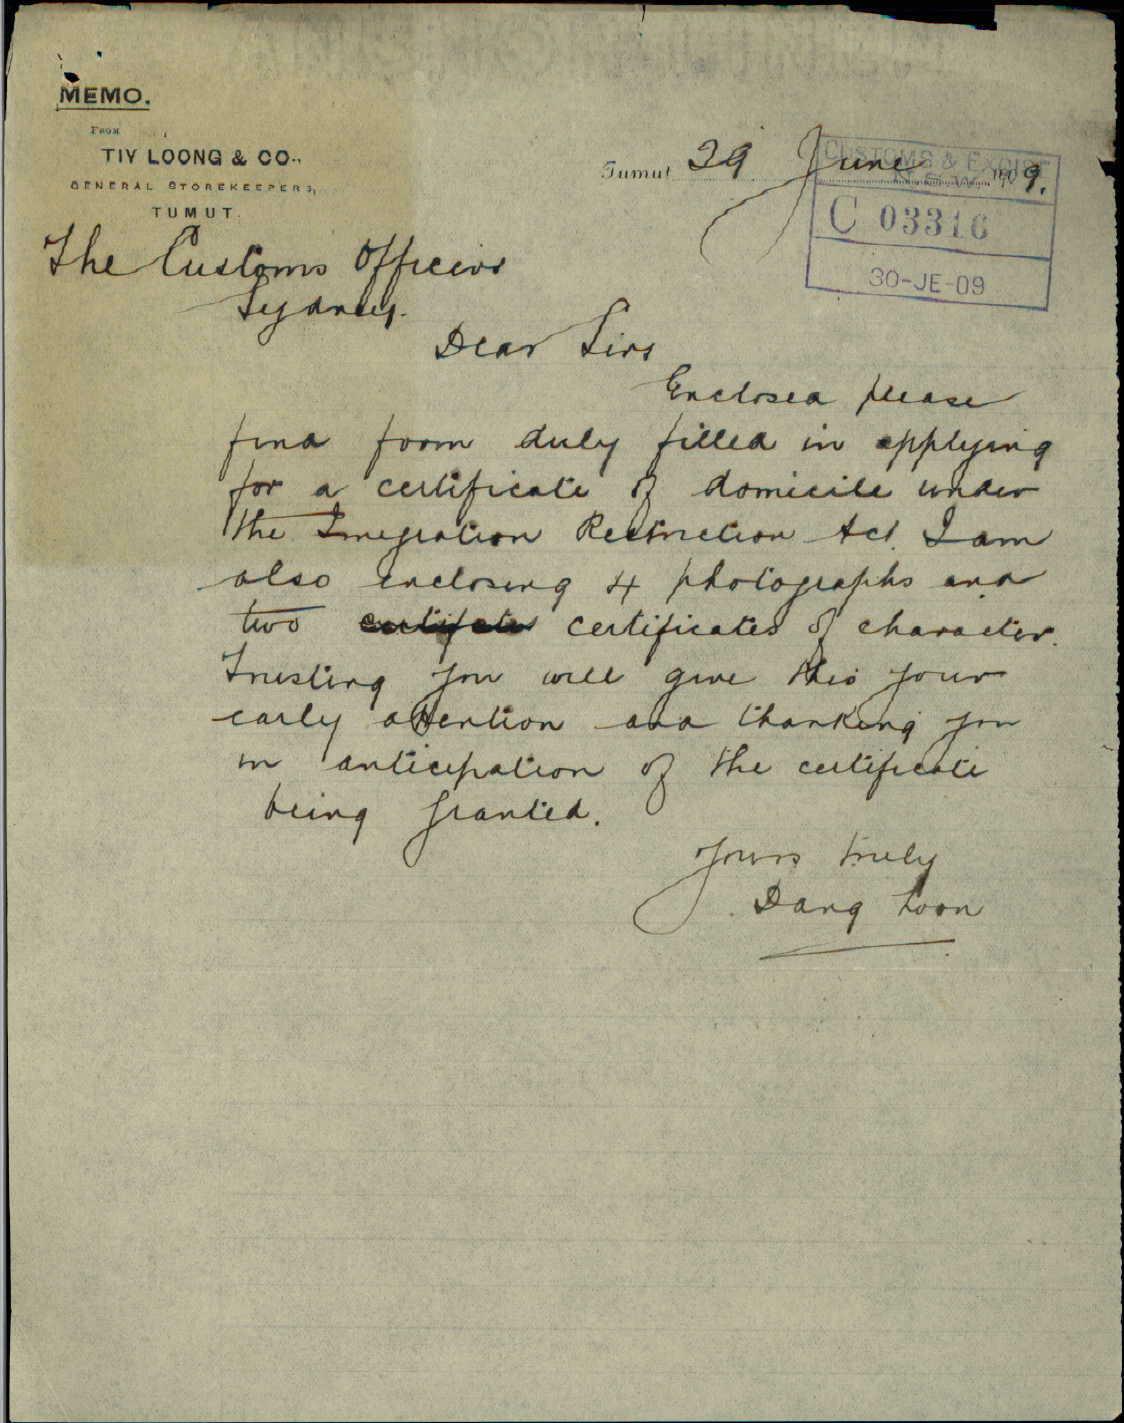 MEMO.
FROM
TIY LOONG & CO.,
GENERAL STOREKEEPERS,
TUMUT.
Tumut 29 June 1909.
CUSTOMS & EXCISE
N.S.W.
C 03316
30-JE-09
The Customs Officers
Sydney.
Dear Sirs
Enclosed please
find form duly filled in applying
for a certificate of domicile under
the Imegration Restriction Act. I am
also enclosing 4 photographs and
two certificates of character.
Trusting you will give this your
early attention and thanking you
in anticipation of the certificate
being granted.
Yours truly
Dang Loon